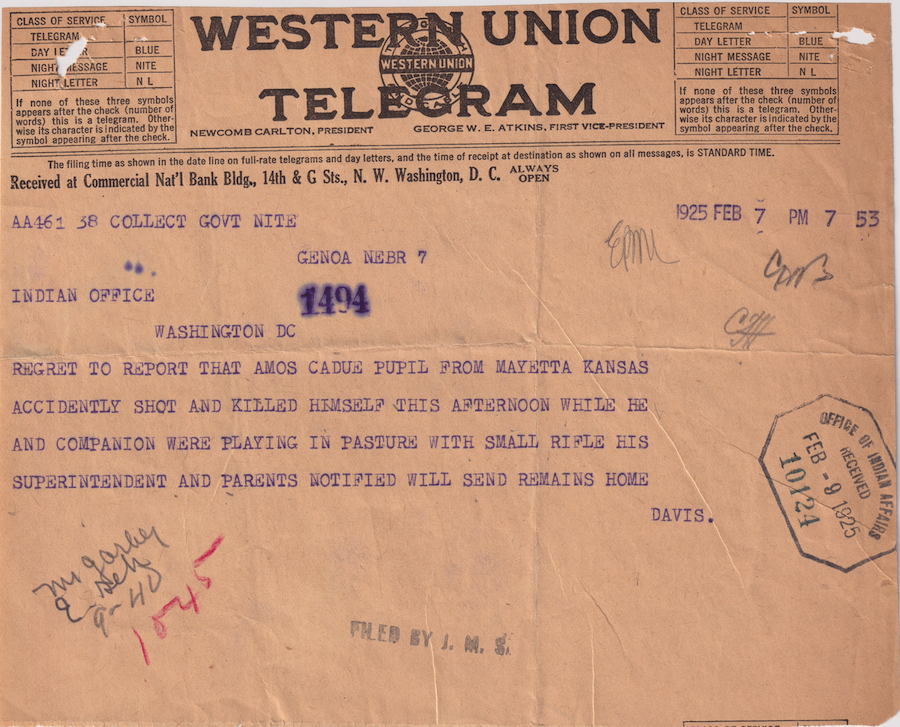 CLASS OF SERVICE SYMBOL
TELEGRAM
DAY LETTER BLUE
NIGHT MESSAGE NITE
NIGHT LETTER N L
If none of these three symbols
appears after the check (number of
words) this is a telegram. Other-
wise its character is indicated by the
symbol appearing after the check.
WESTERN UNION
WESTERN UNION
TELEGRAM
NEWCOMB CARLTON, PRESIDENT GEORGE W. E. ATKINS, FIRST VICE-PRESIDENT
CLASS OF SERVICE SYMBOL
TELEGRAM
DAY LETTER BLUE
NIGHT MESSAGE NITE
NIGHT LETTER N L
If none of these three symbols
appears after the check (number of
words) this is a telegram. Other-
wise its character is indicated by the
symbol appearing after the check.
The filing time as shown in the date line on full-rate telegrams and day letters, and the time of receipt at destination as shown on all messages, is STANDARD TIME.
Received at Commercial Nat'l Bank Bldg., 14th & G Sts., N. W. Washington, D. C. ALWAYS
OPEN
AA461 38 COLLECT GOVT NITE
1925 FEB 7 PM 7 53
GENOA NEBR 7
INDIAN OFFICE
1494
WASHINGTON DC
REGRET TO REPORT THAT AMOS CADUE PUPIL FROM MAYETTA KANSAS
ACCIDENTLY SHOT AND KILLED HIMSELF THIS AFTERNOON WHILE HE
AND COMPANION WERE PLAYING IN PASTURE WITH SMALL RIFLE HIS
SUPERINTENDENT AND PARENTS NOTIFIED WILL SEND REMAINS HOME
DAVIS.
OFFICE OF INDIAN AFFAIRS
RECEIVED
FEB -9 1925
10124
9-40
1045
FILED BY J. M. S.